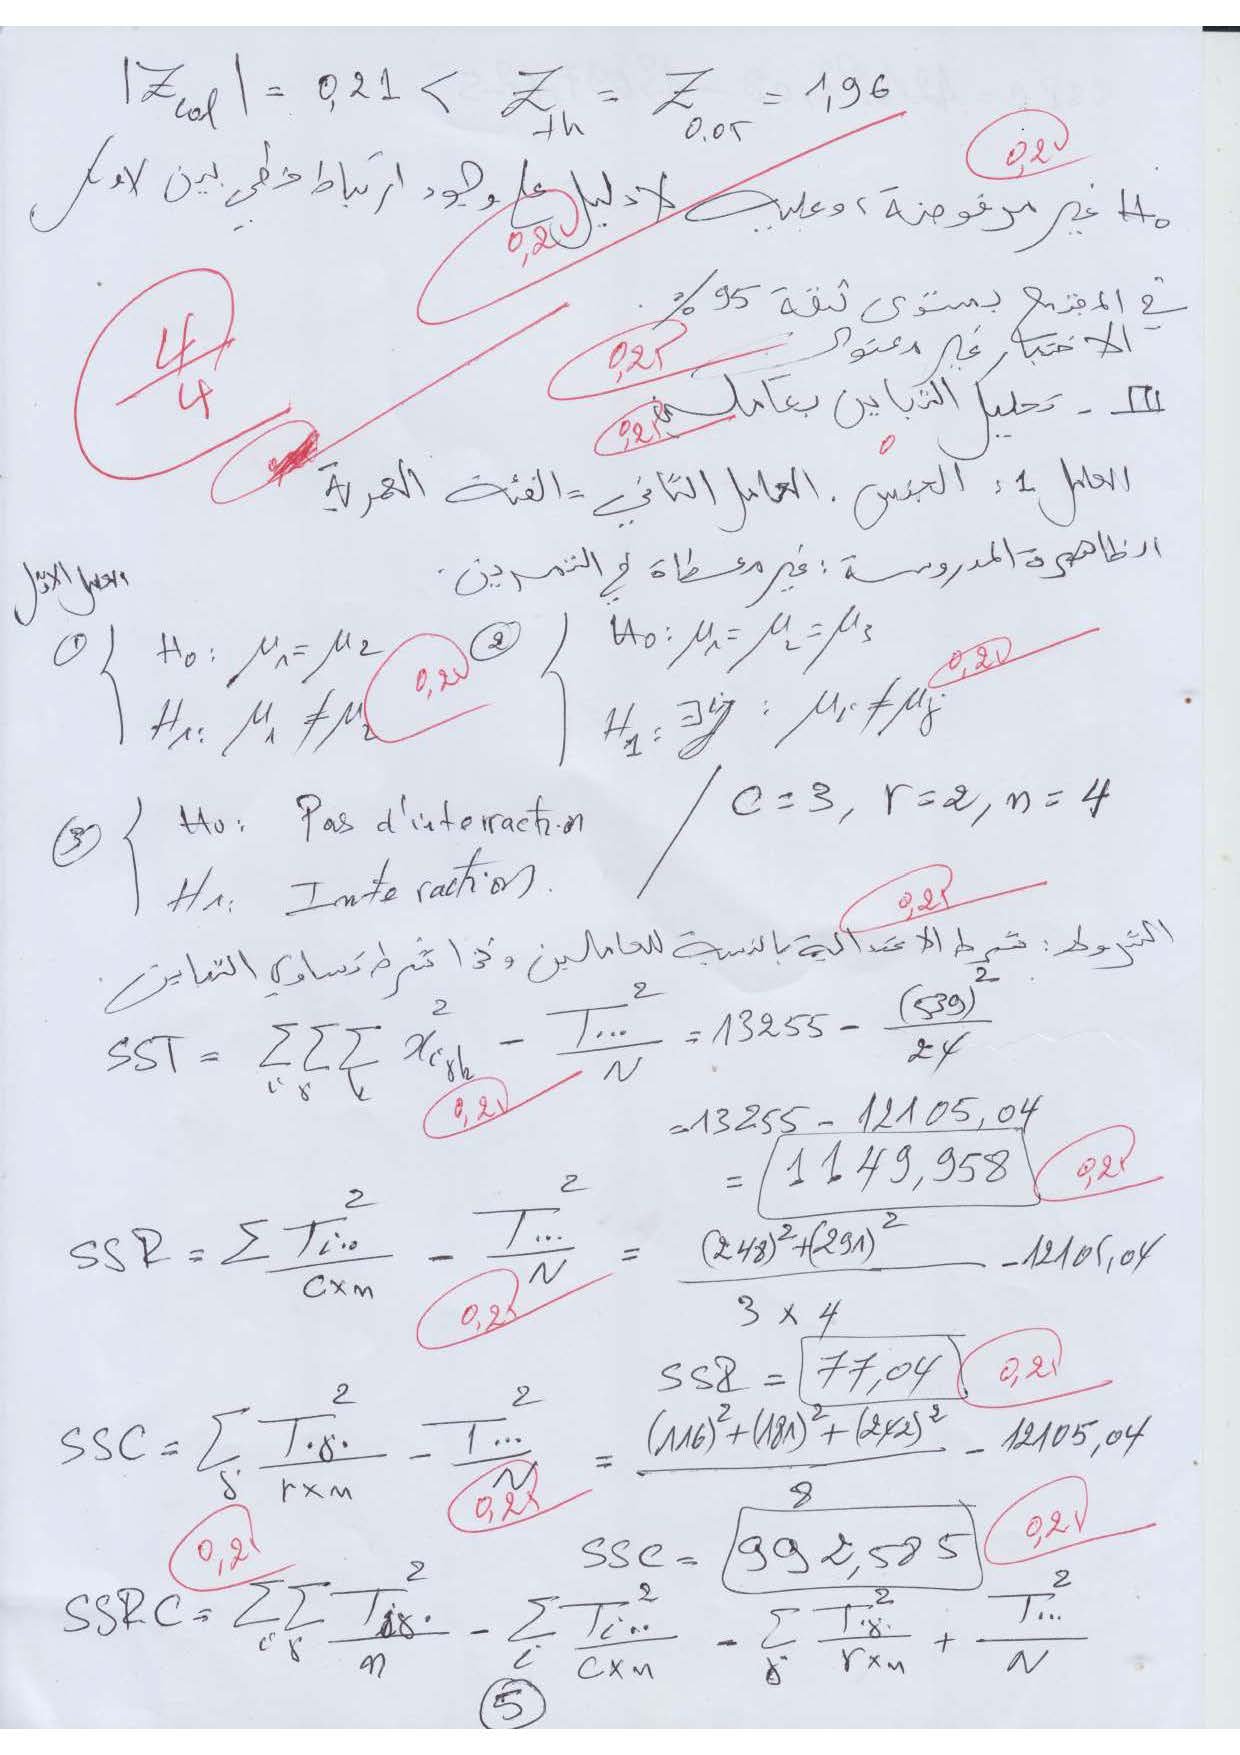 |Z_cal| = 0,21 < Z_th = Z_0.05 = 1,96
0,25
H₀ غير مرفوضة، وعليه لا دليل على وجود ارتباط خطي بين
0,25
في المجتمع بمستوى ثقة 95 %.
الاختبار غير معنوي
0,25
4/4
III - تحليل التباين بعاملين
0,25
العامل 1: الجنس. العامل الثاني = الفئة العمرية
الظاهرة المدروسة: غير معطاة في التمرين.
العامل الأول
① { H₀: μ₁ = μ₂ ② { H₀: μ₁ = μ₂ = μ₃
0,25 0,25
H₁: μ₁ ≠ μ₂ H₁: ∃ij : μi ≠ μj
③ { H₀: Pas d'interraction / C = 3, r = 2, n = 4
H₁: Interaction.
0,25
الشروط: شرط الاعتدالية بالنسبة للعاملين وكذا شرط تساوي التباين.
SST = ΣΣΣ x²ijk - T...²/N = 13255 - (539)²/24
0,25
= 13255 - 12105,04
= 1149,958 0,25
SSR = Σ Ti..²/(c×n) - T...²/N = ((248)² + (291)²)/(3 × 4) - 12105,04
0,25
SSR = 77,04 0,25
SSC = Σj T.j.²/(r×n) - T...²/N = ((116)² + (181)² + (242)²)/8 - 12105,04
0,25
0,25 SSC = 992,585 0,25
SSRC = ΣΣ Tij.²/n - Σi Ti..²/(c×n) - Σj T.j.²/(r×n) + T...²/N
5